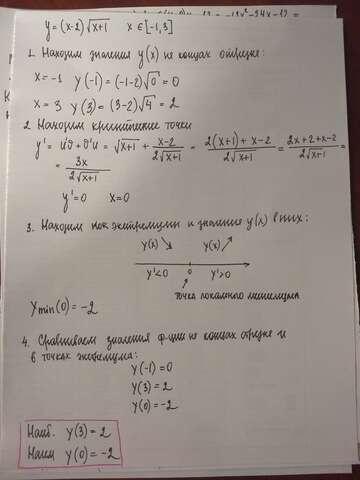 y=(x-2)√x+1   x∈[-1,3]
1. Находим значения y(x) на концах отрезка:
x=-1   y(-1)=(-1-2)√0=0
x=3   y(3)=(3-2)√4=2
2. Находим критические точки
y'=u'v+v'u=√x+1 + (x-2)/(2√x+1) = (2(x+1)+x-2)/(2√x+1) = (2x+2+x-2)/(2√x+1) =
= 3x/(2√x+1)
y'=0   x=0
3. Находим лок экстремумы и значение y(x) в них:
y(x) ↘   y(x) ↗
y'<0   0   y'>0
точка локального минимума
ymin(0)=-2
4. Сравниваем значения ф-ции на концах отрезка и
в точках экстремума:
y(-1)=0
y(3)=2
y(0)=-2
Наиб. y(3)=2
Наим y(0)=-2